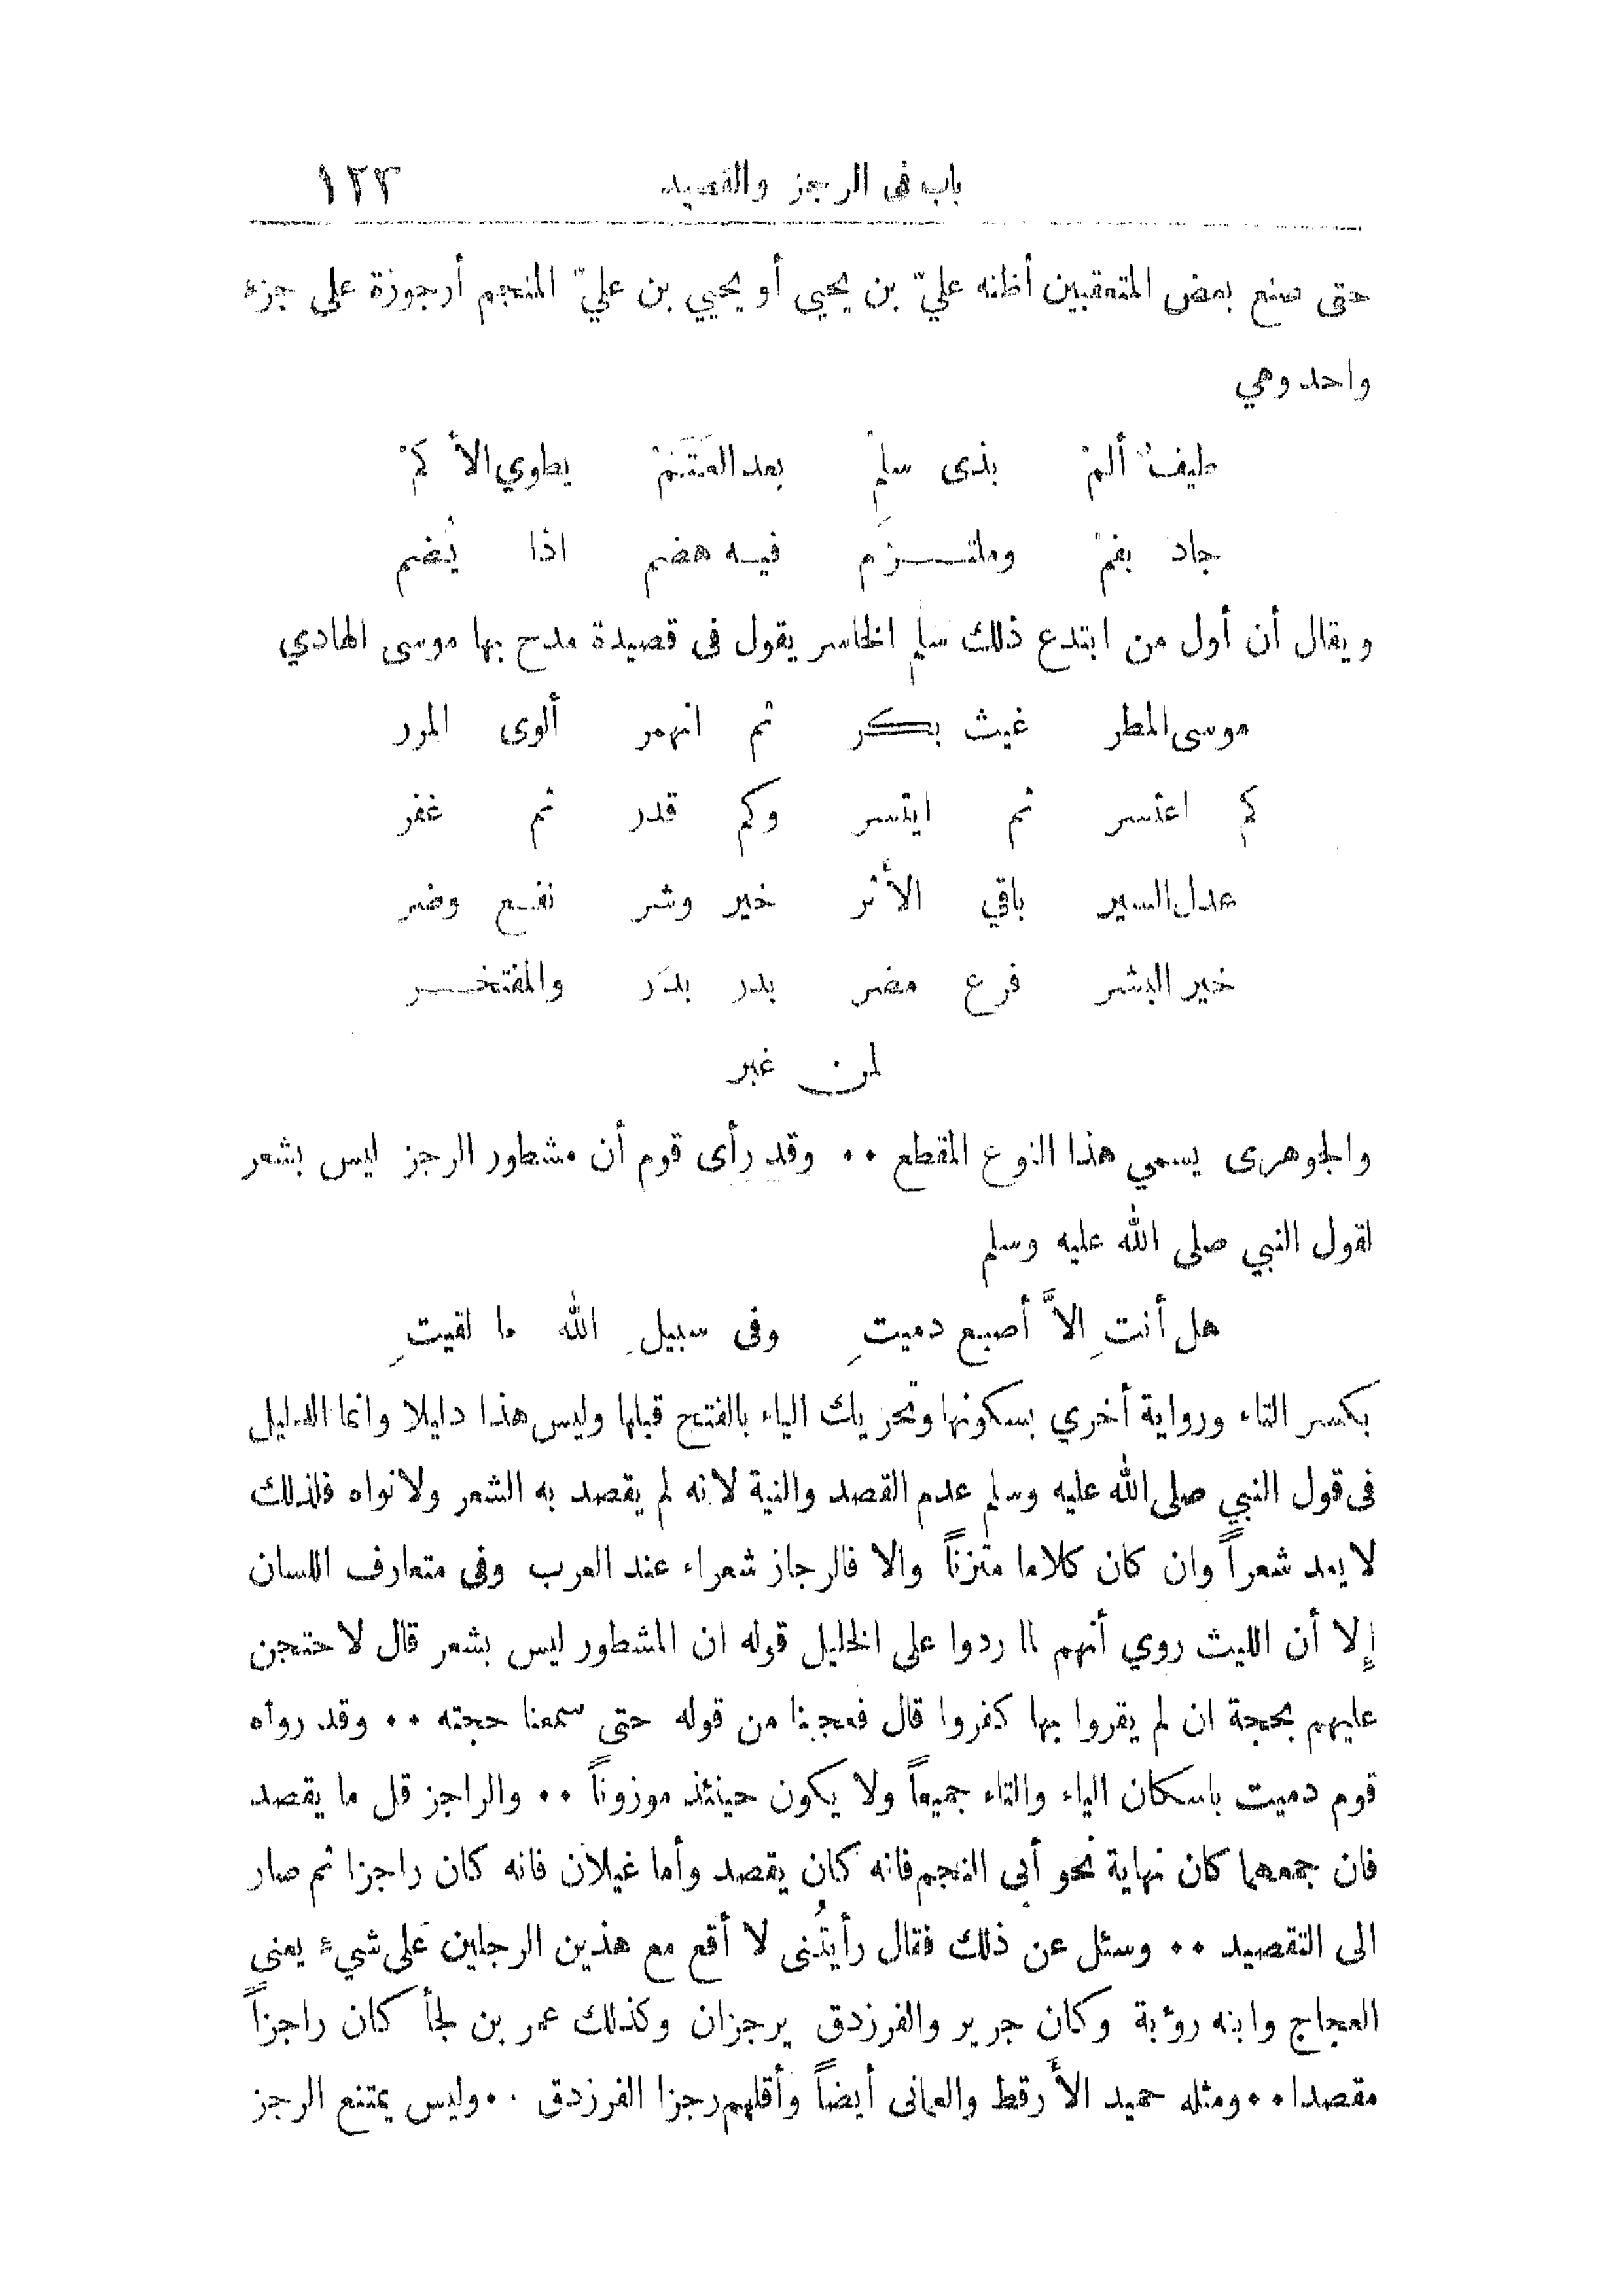 باب فى الرجز والقصيد ١٢٣
حتى صنع بعض المتعقبين أظنه عليّ بن يحيى أو يحيي بن عليّ المنجم أرجوزة على جزء
واحد وهي
طيفٌ ألمْ بذى سلمْ بعد العَتَمْ يطوي الأ كمْ
جاد بفمْ وملتــزَم فيه هضم اذا يُضم
ويقال أن أول من ابتدع ذلك سلم الخاسر يقول فى قصيدة مدح بها موسى الهادي
موسى المطر غيث بكر ثم انهمر ألوى المرر
كم اعتسر ثم ايتسر وكم قدر ثم غفر
عدل السير باقي الأثر خير وشر نفع وضر
خير البشر فرع مضر بدر بدَر والمفتخــر
لمن غبر
والجوهرى يسمي هذا النوع المقطع ٠٠ وقد رأى قوم أن مشطور الرجز ليس بشعر
لقول النبي صلى الله عليه وسلم
هل أنتِ الاَّ أصبع دميتِ وفى سبيلِ الله ما لقيتِ
بكسر التاء ورواية أخري بسكونها وتحريك الياء بالفتح قبلها وليس هذا دليلا وانما الدليل
فى قول النبي صلى الله عليه وسلم عدم القصد والنية لانه لم يقصد به الشعر ولا نواه فلذلك
لا يعد شعراً وان كان كلاما متزناً والا فالرجاز شعراء عند العرب وفى متعارف اللسان
إلا أن الليث روي أنهم لما ردوا على الخليل قوله ان المشطور ليس بشعر قال لاحتجن
عليهم بحجة ان لم يقروا بها كفروا قال فعجبنا من قوله حتى سمعنا حجته ٠٠ وقد رواه
قوم دميت باسكان الياء والتاء جميعاً ولا يكون حينئذ موزوناً ٠٠ والراجز قل ما يقصد
فان جمعهما كان نهاية نحو أبى النجم فانه كان يقصد وأما غيلان فانه كان راجزا ثم صار
الى التقصيد ٠٠ وسئل عن ذلك فقال رأيتُنى لا أقع مع هذين الرجلين على شيء يعنى
العجاج وابنه رؤبة وكان جرير والفرزدق يرجزان وكذلك عمر بن لجأ كان راجزاً
مقصدا ٠٠ ومثله حميد الأرقط والعمانى أيضاً وأقلهم رجزا الفرزدق ٠٠ وليس يمتنع الرجز